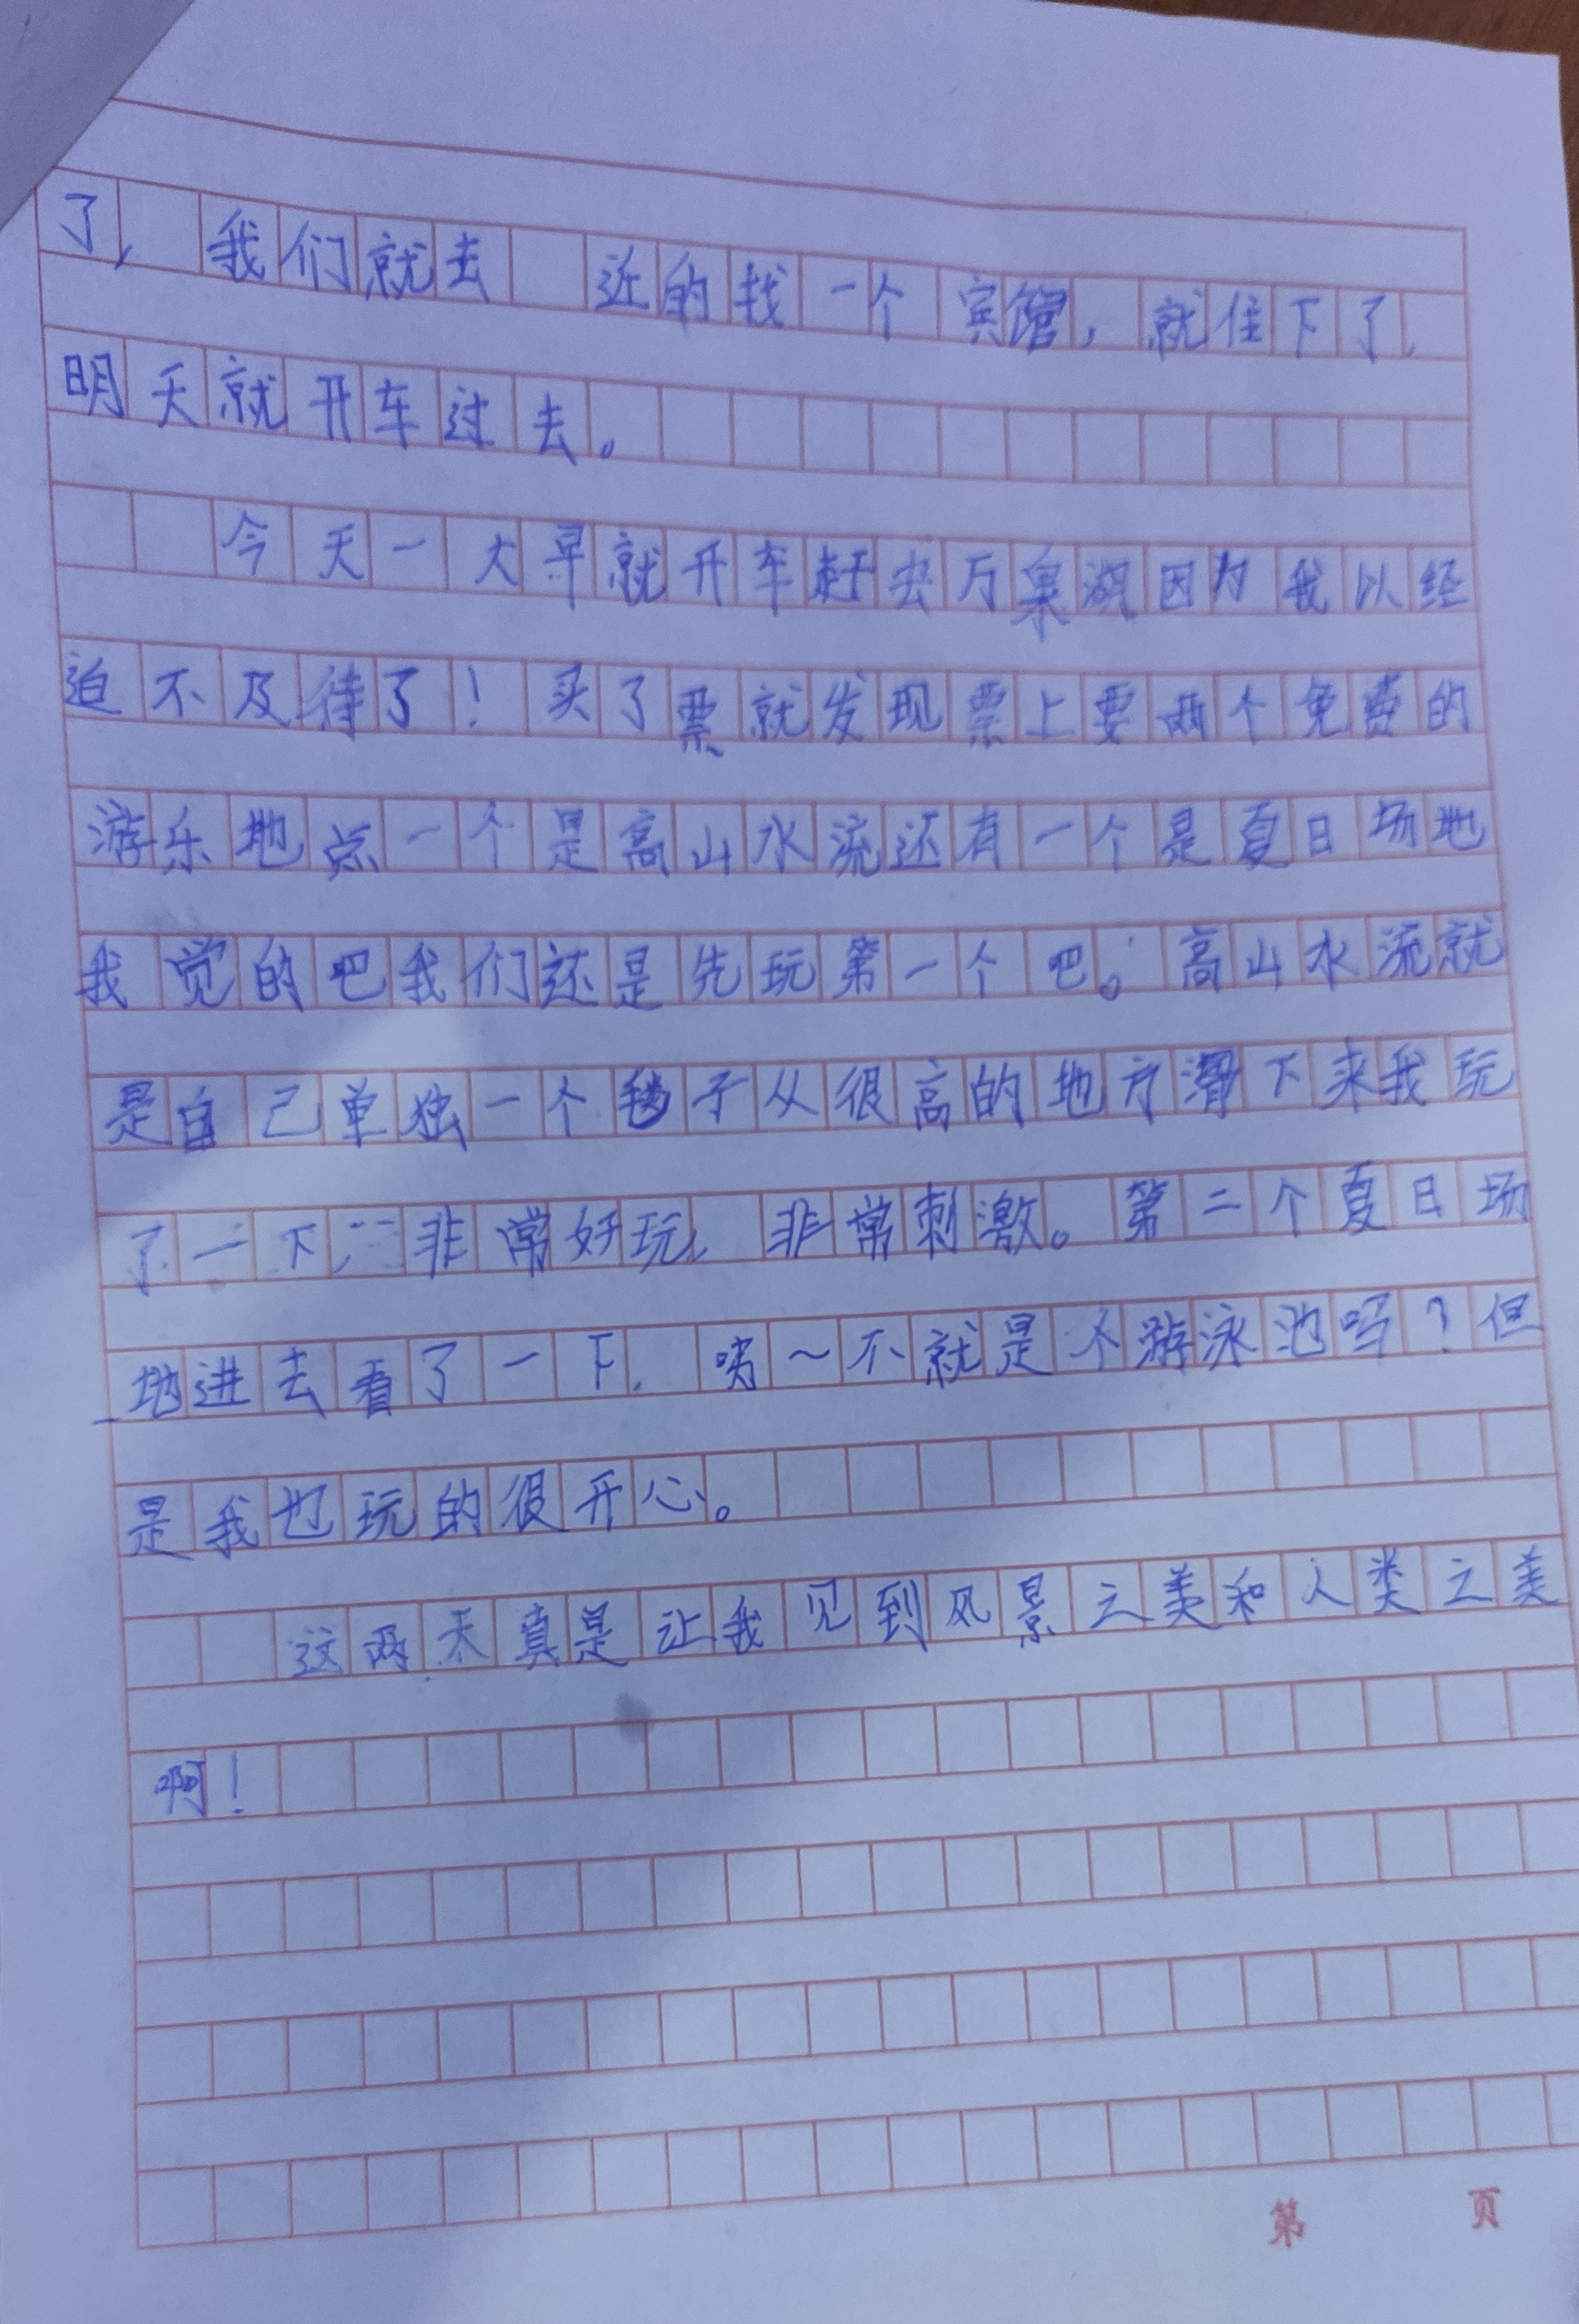 了，我们就去 近的找一个宾馆，就住下了，
明天就开车过去。
今天一大早就开车赶去万泉湖因为我以经
迫不及待了！买了票就发现票上要两个免费的
游乐地点一个是高山水流还有一个是夏日场地
我觉的吧我们还是先玩第一个吧。高山水流就
是自己单独一个 子从很高的地方滑下来我玩
了一下 非常好玩，非常刺激。第二个夏日场
地进去看了一下， ～不就是个游泳池吗？但
是我也玩的很开心。
这两天真是让我见到风景之美和人类之美
啊！
第 页